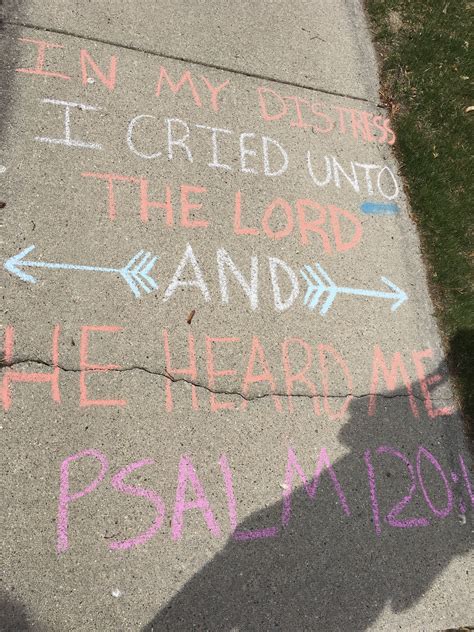 IN MY DISTRESS
I CRIED UNTO
THE LORD
AND
HE HEARD ME
PSALM 120:1